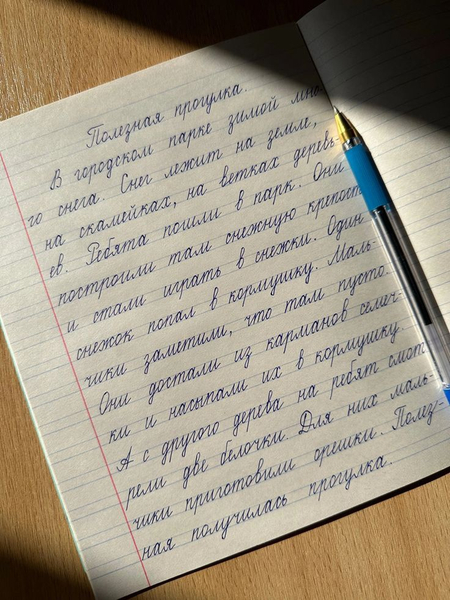 Полезная прогулка.
В городском парке зимой мно-
го снега. Снег лежит на земле,
на скамейках, на ветках деревь-
ев. Ребята пошли в парк. Они
построили там снежную крепость
и стали играть в снежки. Один
снежок попал в кормушку. Маль-
чики заметили, что там пусто.
Они достали из карманов семеч-
ки и насыпали их в кормушку.
А с другого дерева на ребят смот-
рели две белочки. Для них маль-
чики приготовили орешки. Полез-
ная получилась прогулка.